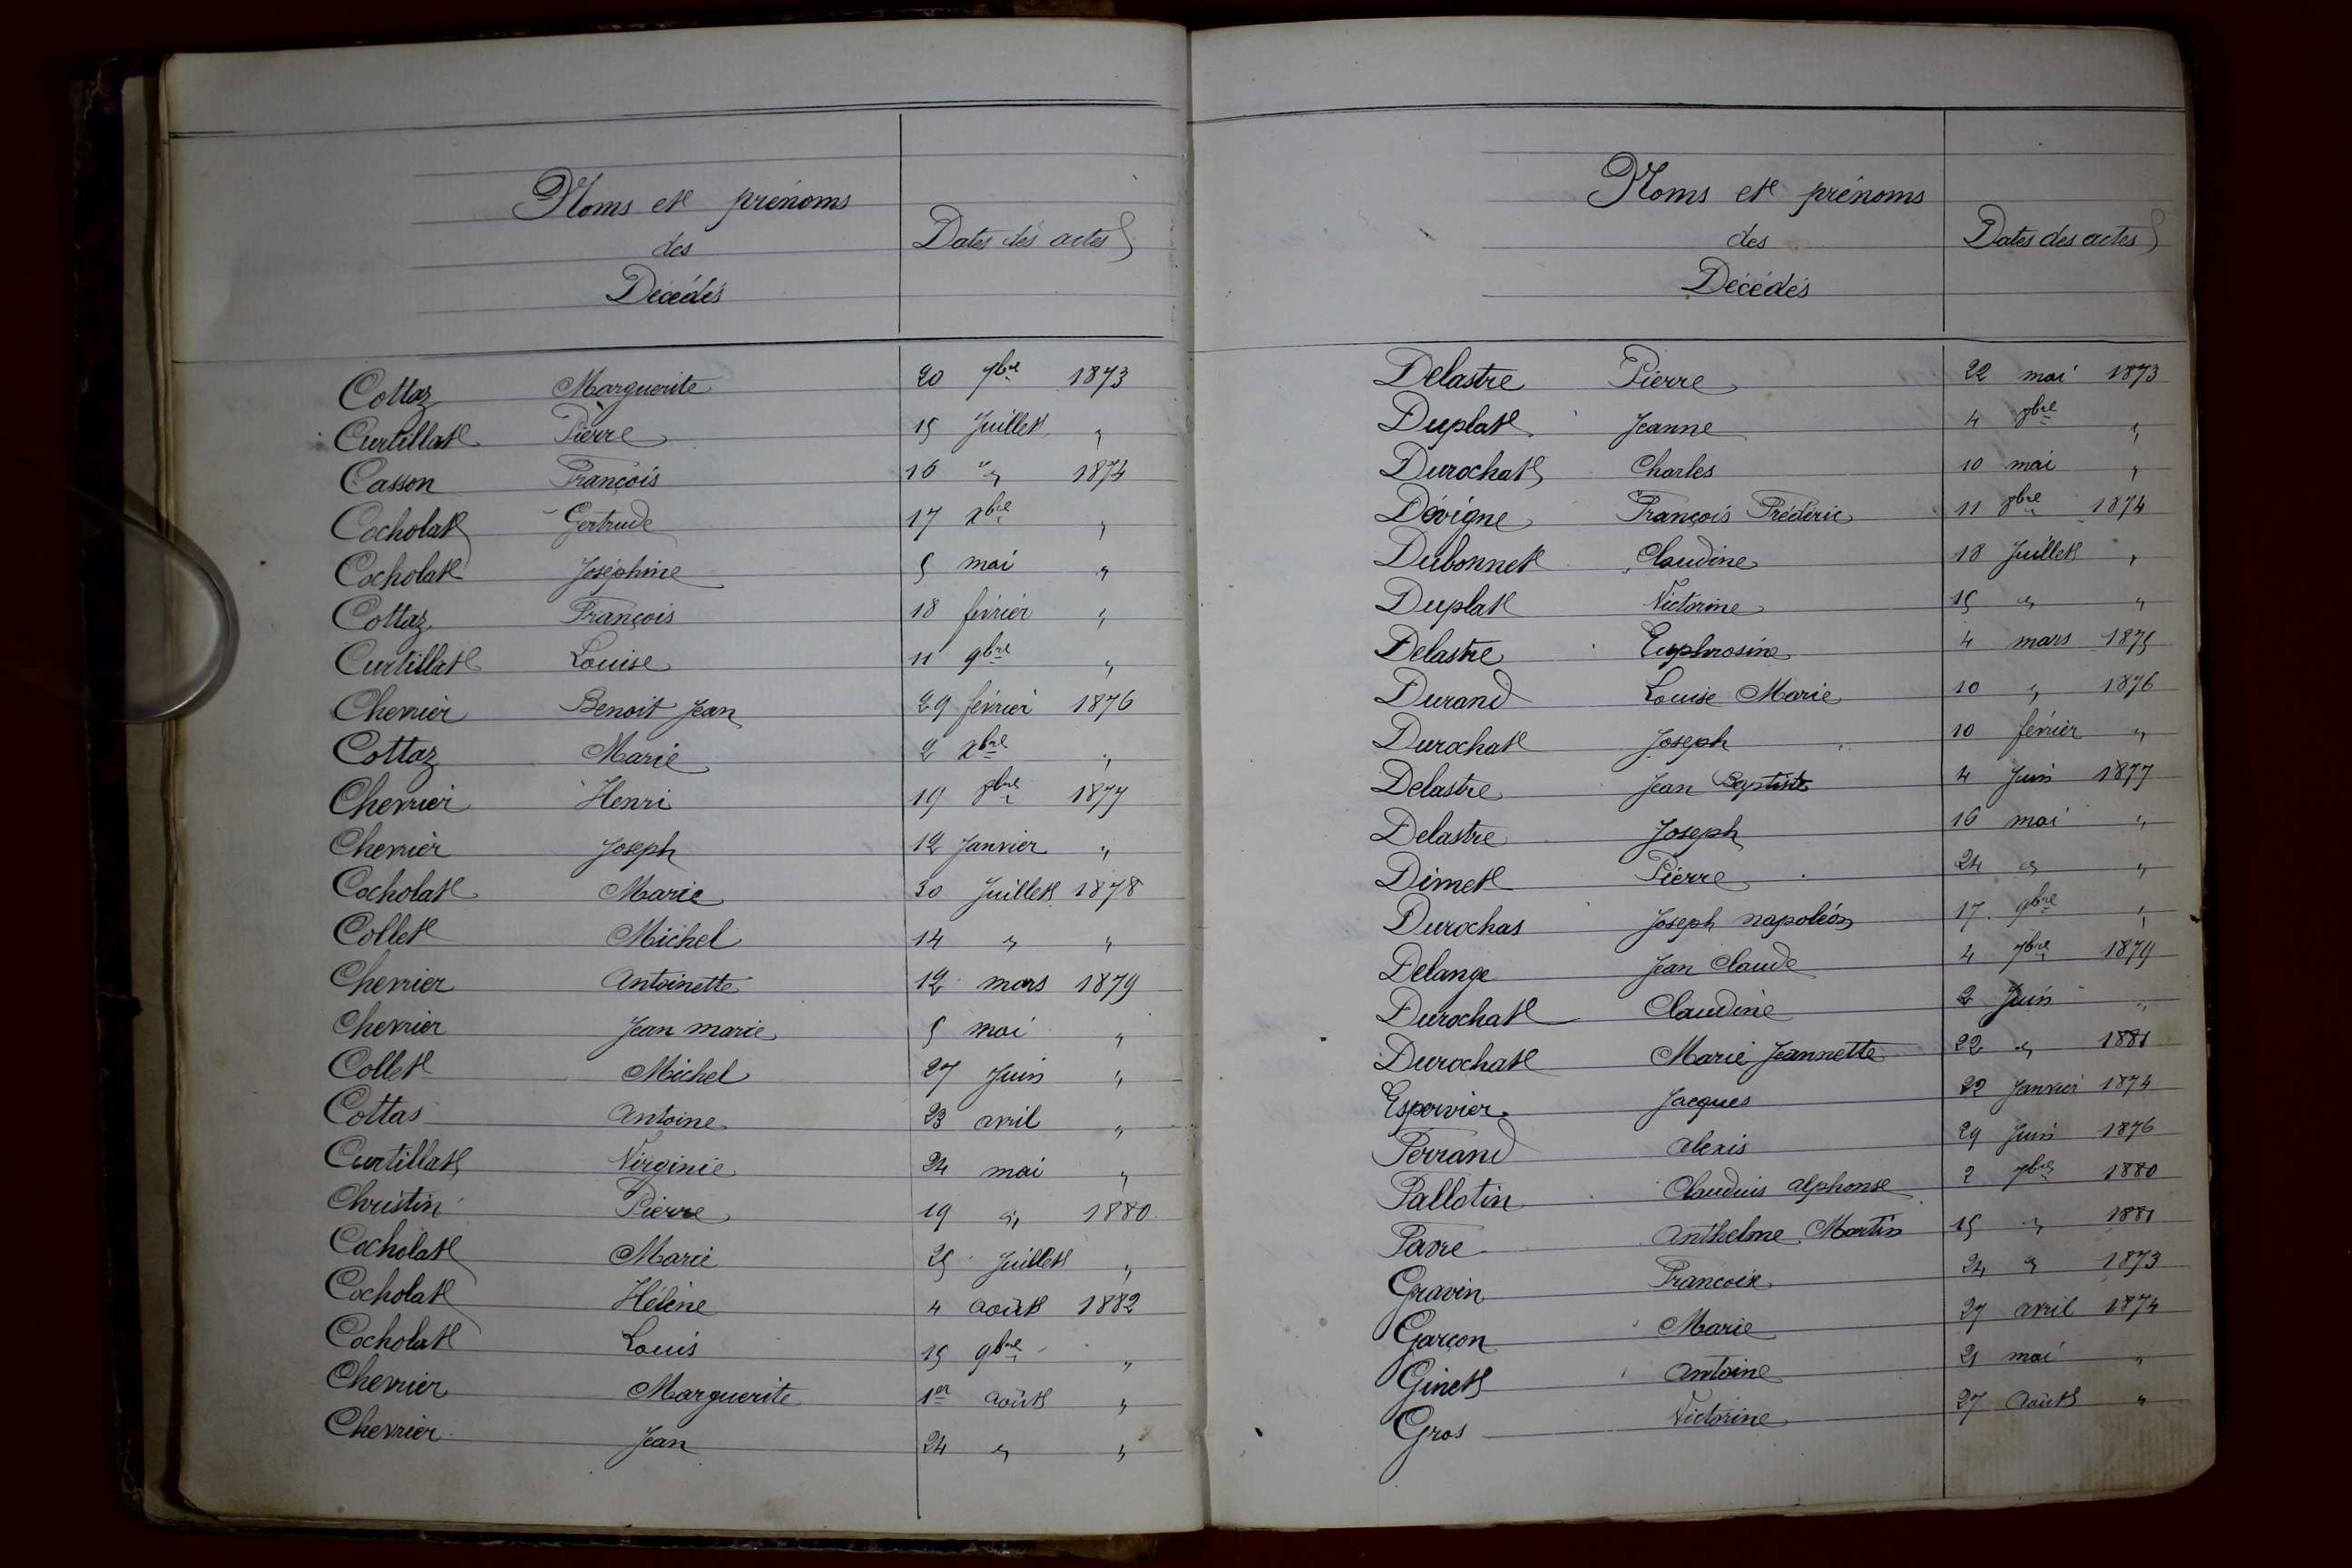 Noms et prénoms
des
Décédés
Dates des actes
Cottaz Marguerite 20 7bre 1873
Curtillat Pierre 15 Juillet "
Casson François 16 " 1874
Cocholat Gertrude 17 xbre "
Cocholat Joséphine 5 mai "
Cottaz François 18 février "
Curtillat Louise 11 9bre "
Chevrier Benoit Jean 29 février 1876
Cottaz Marie 2 xbre "
Chevrier Henri 19 8bre 1877
Chevrier Joseph 12 Janvier "
Cocholat Marie 30 Juillet 1878
Collet Michel 14 " "
Chevrier Antoinette 12 mars 1879
Chevrier Jean marie 5 mai "
Collet Michel 27 Juin "
Cottas Antoine 23 avril "
Curtillat Virginie 24 mai "
Christin Pierre 19 " 1880
Cocholat Marie 25 Juillet "
Cocholat Hélène 4 août 1882
Cocholat Louis 15 9bre "
Chevrier Marguerite 1er août "
Chevrier Jean 24 " "
Noms et prénoms
des
Décédés
Dates des actes
Delastre Pierre 22 mai 1873
Duplat Jeanne 4 8bre "
Durochat Charles 10 mai "
Dévigne François Frédéric 11 8bre 1874
Dubonnet Claudine 18 Juillet "
Duplat Victorine 15 " "
Delastre Euphrosine 4 mars 1875
Durand Louise Marie 10 " 1876
Durochat Joseph 10 février "
Delastre Jean Baptiste 4 Juin 1877
Delastre Joseph 16 mai "
Dimet Pierre 24 " "
Durochas Joseph napoléon 17 9bre "
Delange Jean Claude 4 7bre 1879
Durochat Claudine 2 Juin "
Durochat Marie Jeannette 22 " 1881
Espervier Jacques 22 Janvier 1874
Ferrand alexis 29 Juin 1876
Fallotin Claudius alphonse 2 7bre 1880
Favre Anthelme Martin 15 " 1881
Gravin Francoise 24 " 1873
Garçon Marie 27 avril 1874
Ginet Antoine 21 mai "
Gros Victorine 27 Août "